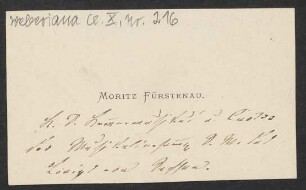 Weberiana Cl. X, nr. 216
MORITZ FÜRSTENAU.
K. S. Kammermusikus u Custos
der Musikaliensammlung S. M. des
Königs von Sachsen.